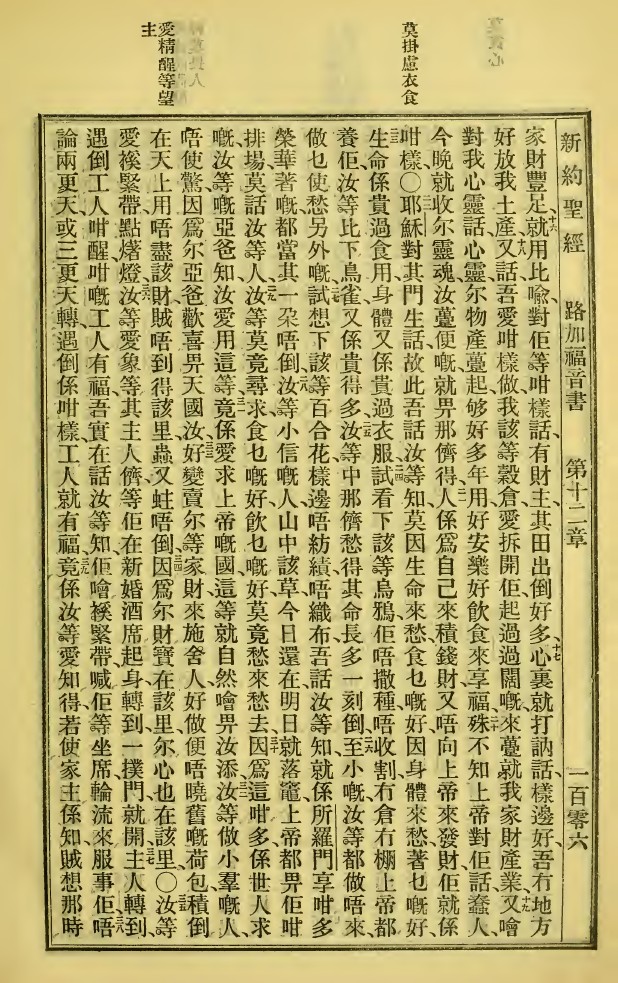 新約聖經 路加福音書 第十二章 一百零六
家財豐足、十六就用比喩對佢等咁樣話、有財主、其田出倒好多、十七心裏就打訥話、樣邊好、吾冇地方
好放我土產、十八又話、吾愛咁樣做、我該等穀倉愛拆開佢、起過過濶嘅來、薹就我家財產業、十九又噲
對我心靈話、心靈、尔物產薹起够好多年用、好安樂、好飲食、來享福、二十殊不知上帝對佢話、蠢人、
今晚就收尔靈魂、汝薹便嘅、就畀那儕得、二一人係爲自己來積錢財、又唔向上帝來發財、佢就係
咁樣、〇二二耶穌對其門生話、故此吾話汝等知、莫因生命來愁食乜嘅好、因身體來愁著乜嘅好、
二三生命係貴過食用、身體又係貴過衣服、二四試看下該等烏鴉、佢唔撒種、唔收割、冇倉冇棚、上帝都
養佢、汝等比下鳥雀、又係貴得多、二五汝等中那儕愁得其命長多一刻倒、二六至小嘅、汝等都做唔來、
做乜使愁另外嘅、二七試想下該等百合花樣邊、唔紡績、唔織布、吾話汝等知、就係所羅門享咁多
榮華著嘅、都當其一朶唔倒、二八汝等小信嘅人、山中該草、今日還在、明日就落竈、上帝都畀佢咁
排場、莫話汝等人、二九汝等莫竟尋求食乜嘅好、飲乜嘅好、莫竟愁來愁去、三十因爲這咁多、係世人求
嘅、汝等嘅亞爸、知汝愛用這等、三一竟係愛求上帝嘅國、這等就自然噲畀汝添、三二汝等做小羣嘅人、
唔使驚、因爲尔亞爸歡喜畀天國汝、三三好變賣尔等家財、來施舍人、好做便唔曉舊嘅荷包、積倒
在天上用唔盡該財、賊唔到得該里、蟲又蛀唔倒、三四因爲尔財寶在該里、尔心也在該里、〇三五汝等
愛褑緊帶、點燈燈、三六汝等愛象等其主人儕等、佢在新婚酒席起身轉到、一撲門就開、三七主人轉到、
遇倒工人咁醒、咁嘅工人有福、吾實在話汝等知、佢噲褑緊帶、喊佢等坐席、輪流來服事佢、三八唔
論兩更天、或三更天轉、遇倒係咁樣、工人就有福、三九竟係汝等愛知得、若使家主係知賊想那時
莫掛慮衣食
愛精醒等望
主